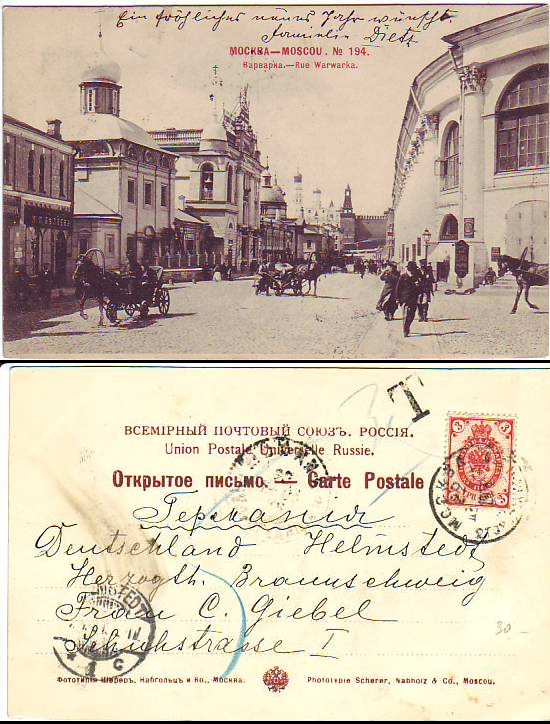 Ein fröhliches neues Jahr wünscht.
Familie Dietz
МОСКВА—MOSCOU. № 194.
Варварка.—Rue Warwarka.
T
ВСЕМIРНЫЙ ПОЧТОВЫЙ СОЮЗЪ. РОССIЯ.
Union Postale Universelle Russie.
Открытое письмо. — Carte Postale
3 3
3 3
МОСКВА
Германія
Deutschland Helmstedt
Herzogth. Braunschweig
Frau C. Giebel
Schuhstrasse I
30-
Фототипія Шереръ, Набгольцъ и Ко., Москва. Phototypie Scherer, Nabholz & Co., Moscou.